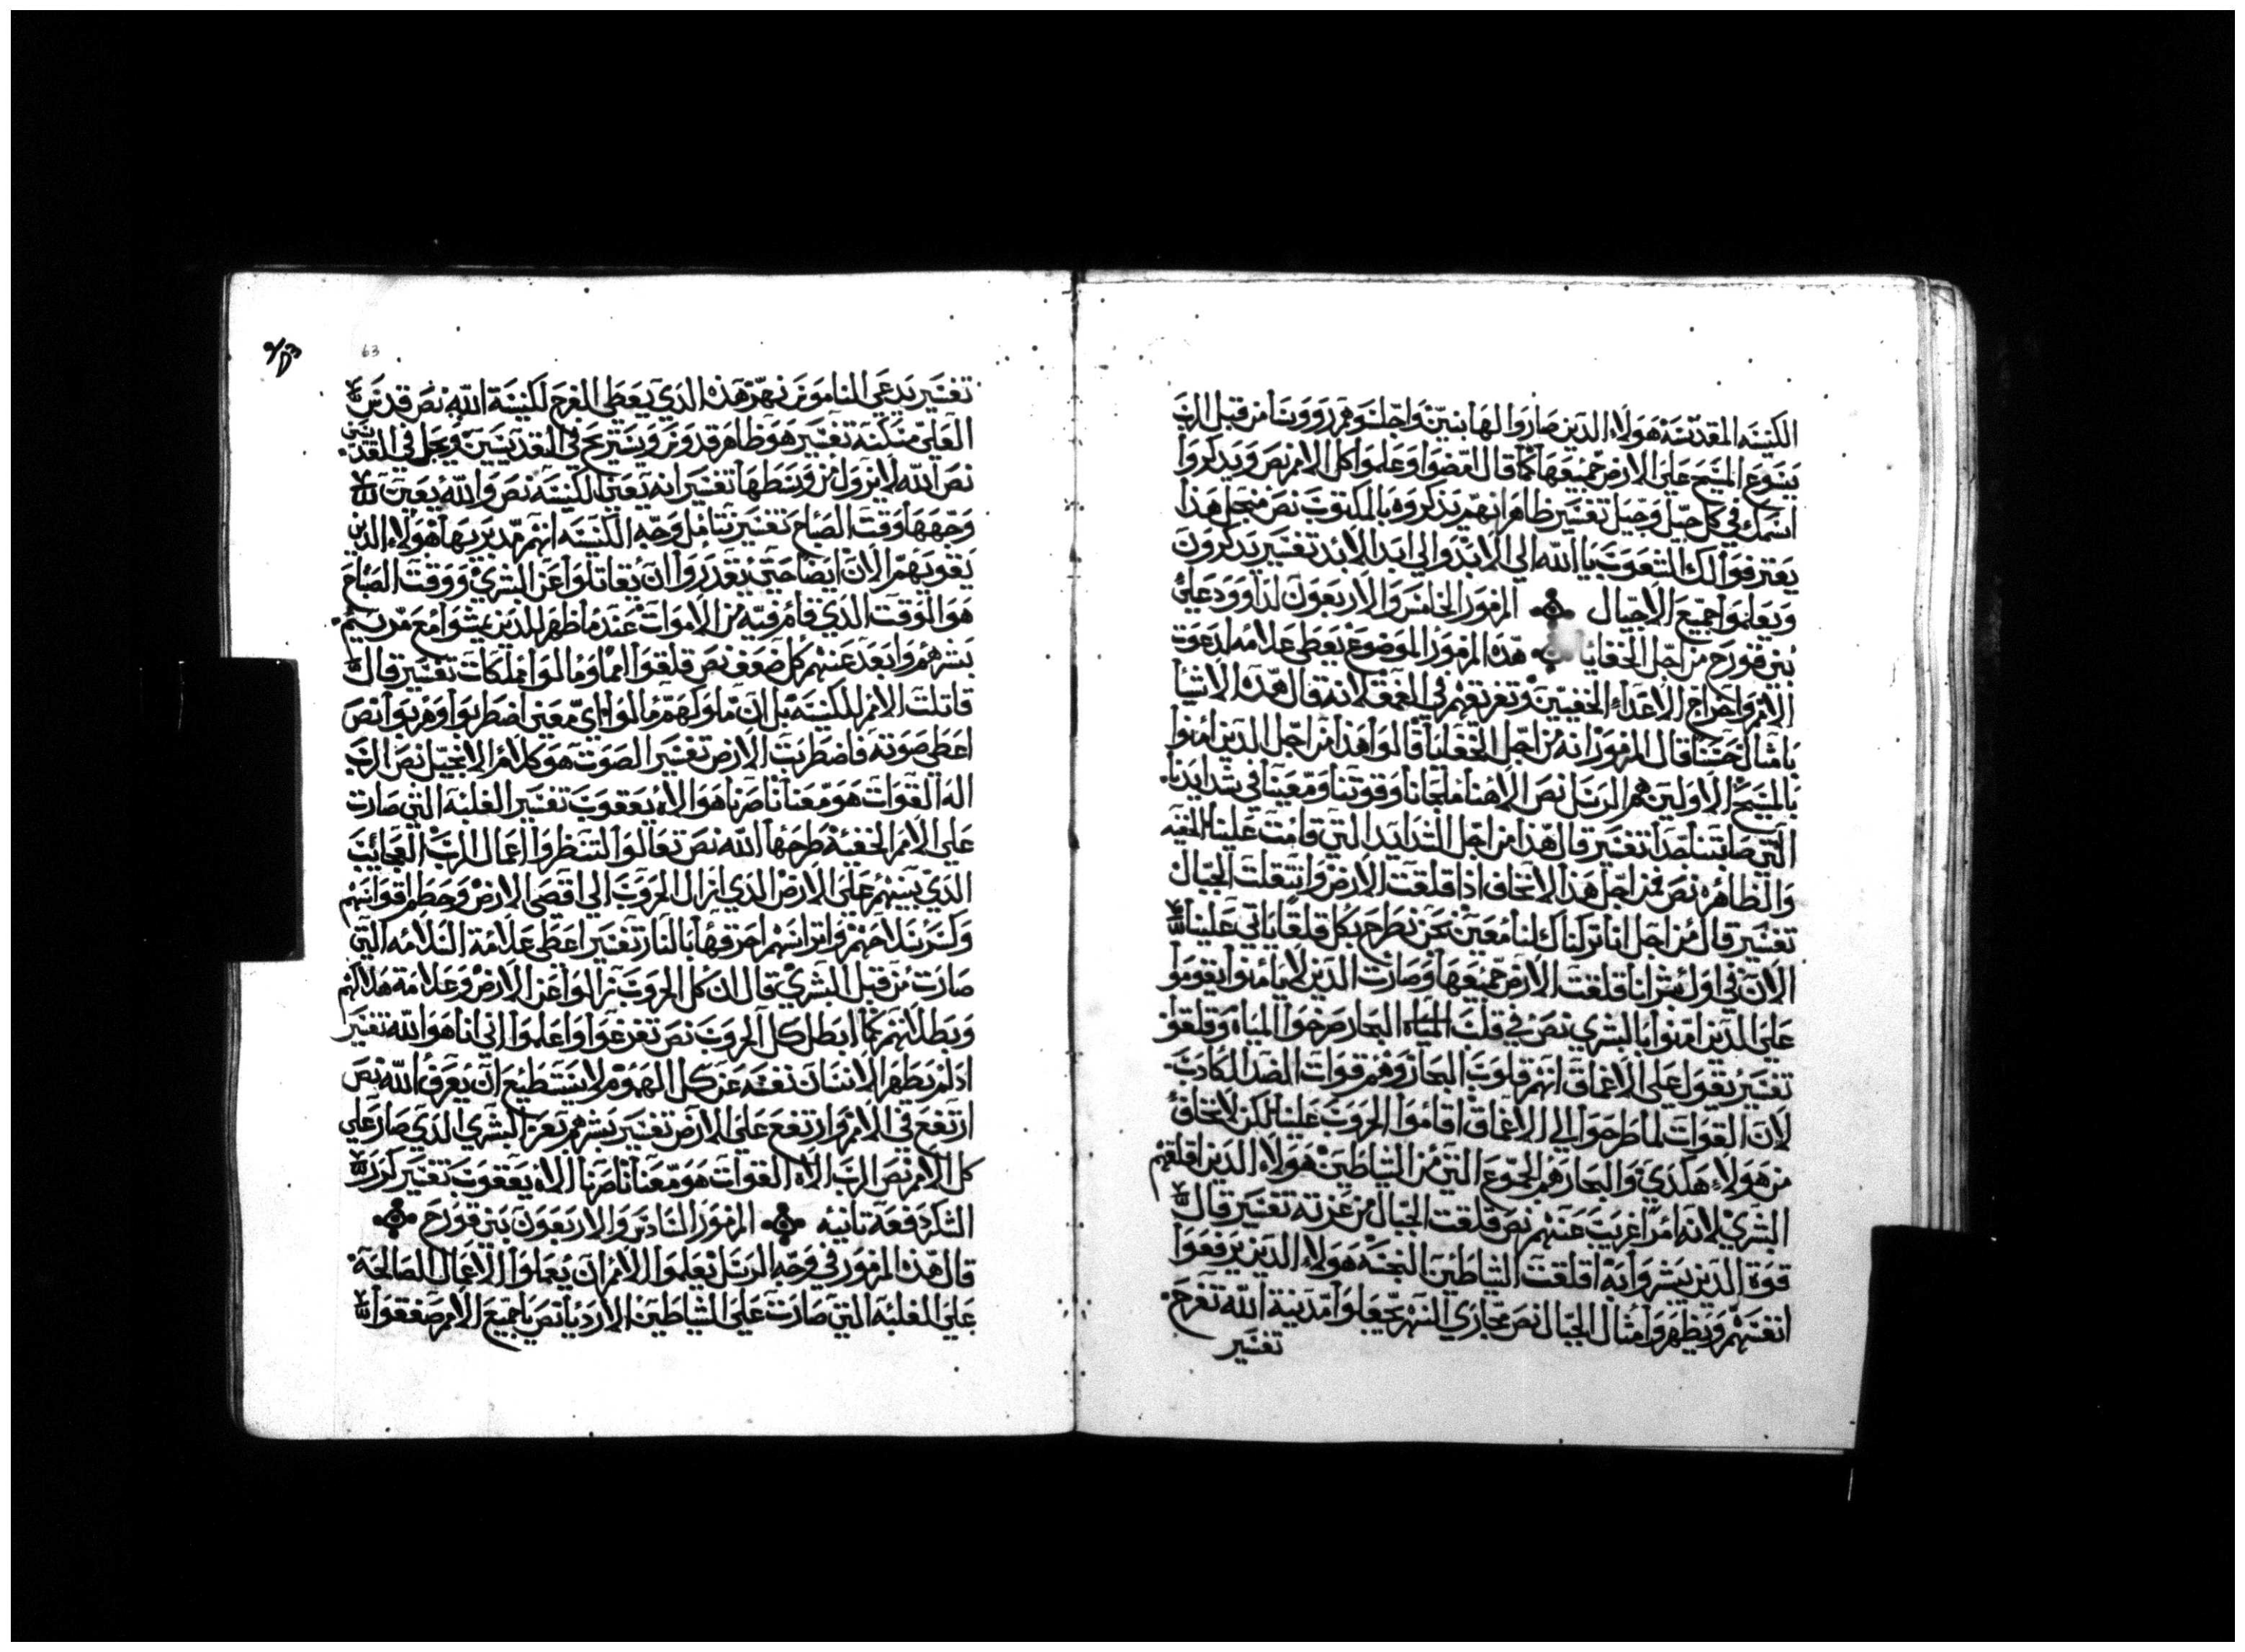 الكنيسه المقدسه هولاء الدين صاروا لها بنين واجلسوهم رووسا من قبل الرب
يسوع المسيح علي الارض جميعها كما قال امضوا وعلموا كل الامم نص ويدكروا
اسمك في كل جيل وجيل تفسير ظاهر انهم يدكروه بالمكتوب نص منجل هدا
يعترفوا لك الشعوب يا الله الي الابد والي ابد الابد تفسير يدكرون
ويعلموا جميع الاجيال المزمور الخامس والاربعون لداوود علي
بني قورح من اجل الخفايا هدا المزمور الموضوع يعطي علامه لدعوت
الامم واخراج الاعداء الخفيين وتغريقهم في العمق لانه قال هده الاشيا
بامثال حسنا قال المزمور انه من اجل الخفايا قالوا هدا من اجل الدين امنوا
بالمسيح الاولين هم الرسل نص الاهنا ملجانا وقوتنا ومعينا في شدايدنا
التي صابتنا جدا تفسير قال هدا من اجل الشدايد التي قامت علينا الخفيه
والظاهره نص فمن اجل هدا لا نخاف ادا قلقت الارض وانتقلت الجبال
تفسير قال من اجل انا تركناك لنا معين نحن نطرح بكل قلق ياتي علينا
الان في اول بشرانا قلقت الارض جميعها وصارت الدين لا يامنوا يقوموا
علي الدين امنوا بالبشري نص في قلب المياه البحار صرخوا المياه وقلقوا
تفسير يقول علي الاعماق انهم قلوب البحار وهم قوات المضاد الكادب
لان القوات لما طرحوا الي الاعماق اقاموا الحروب علينا لكن لا نخاف
من هولاء هكدي والبحار هم الجموع التي من الشياطين هولاء الدين اقلقهم
البشري لانه امرا غريب عنهم نص قلقت الجبال من عزته تفسير قال
قوة الدين بشروا به اقلقت الشياطين النجسه هولاء الدين يرفعوا
انفسهم ويظهروا امثال الجبال نص مجاري النهر يجعلوا مدينة الله تفرح
تفسير
63
تفسير يدعي الناموس نهر هدا الدي يعطي الفرح لكنيسة الله نص قدس
العلي مسكنه تفسير هو ظاهر قدوس ويستريح في القديسين ويحل في القديسين
نص الله لا يزول من وسطها تفسير انه يعني الكنيسه نص والله يعين
وجهها وقت الصباح تفسير نتامل وجه الكنيسه انهم مدبريها هولاء الدين
يقويهم الان ايضا حتي يقدروا ان يقاتلوا عن البشري ووقت الصباح
هو الوقت الدي قام فيه من الاموات عندما ظهر للدين يمشوا مع مريم
بشرهم وابعد عنهم كل ضعف نص قلقوا امما ومالوا مملكات تفسير قال
قاتلت الامم للكنيسه بل ان ملوكهم مالوا اي معني اضطربوا وهربوا نص
اعطي صوته فاضطربت الارض تفسير الصوت هو كلام الانجيل نص الرب
اله القوات هو معنا ناصرنا هو الاه يعقوب تفسير الغلبه التي صارت
علي الامم الخفية طرحها الله نص تعالوا لتنظروا اعمال الرب العجائب
الدي بينهم علي الارض الدي ازال الحروب الي اقصي الارض وحطم اقواسهم
وكسر سلاحهم واتراسهم احرقها بالنار تفسير اعطي علامة السلامه التي
صارت من قبل البشري قال ان كل الحروب زالوا عن الارض وعلامة هلاكهم
وبطلانهم كما ابطل كل الحروب نص تفرغوا واعلموا اني انا هو الله تفسير
اد لم يطهر الانسان نفسه عن كل الهموم لا يستطيع ان يعرف الله نص
ارتفع في الامم وارتفع علي الارض تفسير بشرهم بعز البشري الدي صار علي
كل الامم نص الرب الاه القوات هو معنا ناصرنا الاه يعقوب تفسير كرر
الشكر دفعة تانيه المزمور السادس والاربعون بني قورح
قال هدا المزمور في وجه الرسل يعلموا الامم ان يعملوا الاعمال الصالحة
علي الغلبه التي صارت علي الشياطين الاردياء نص يا جميع الامم صفقوا